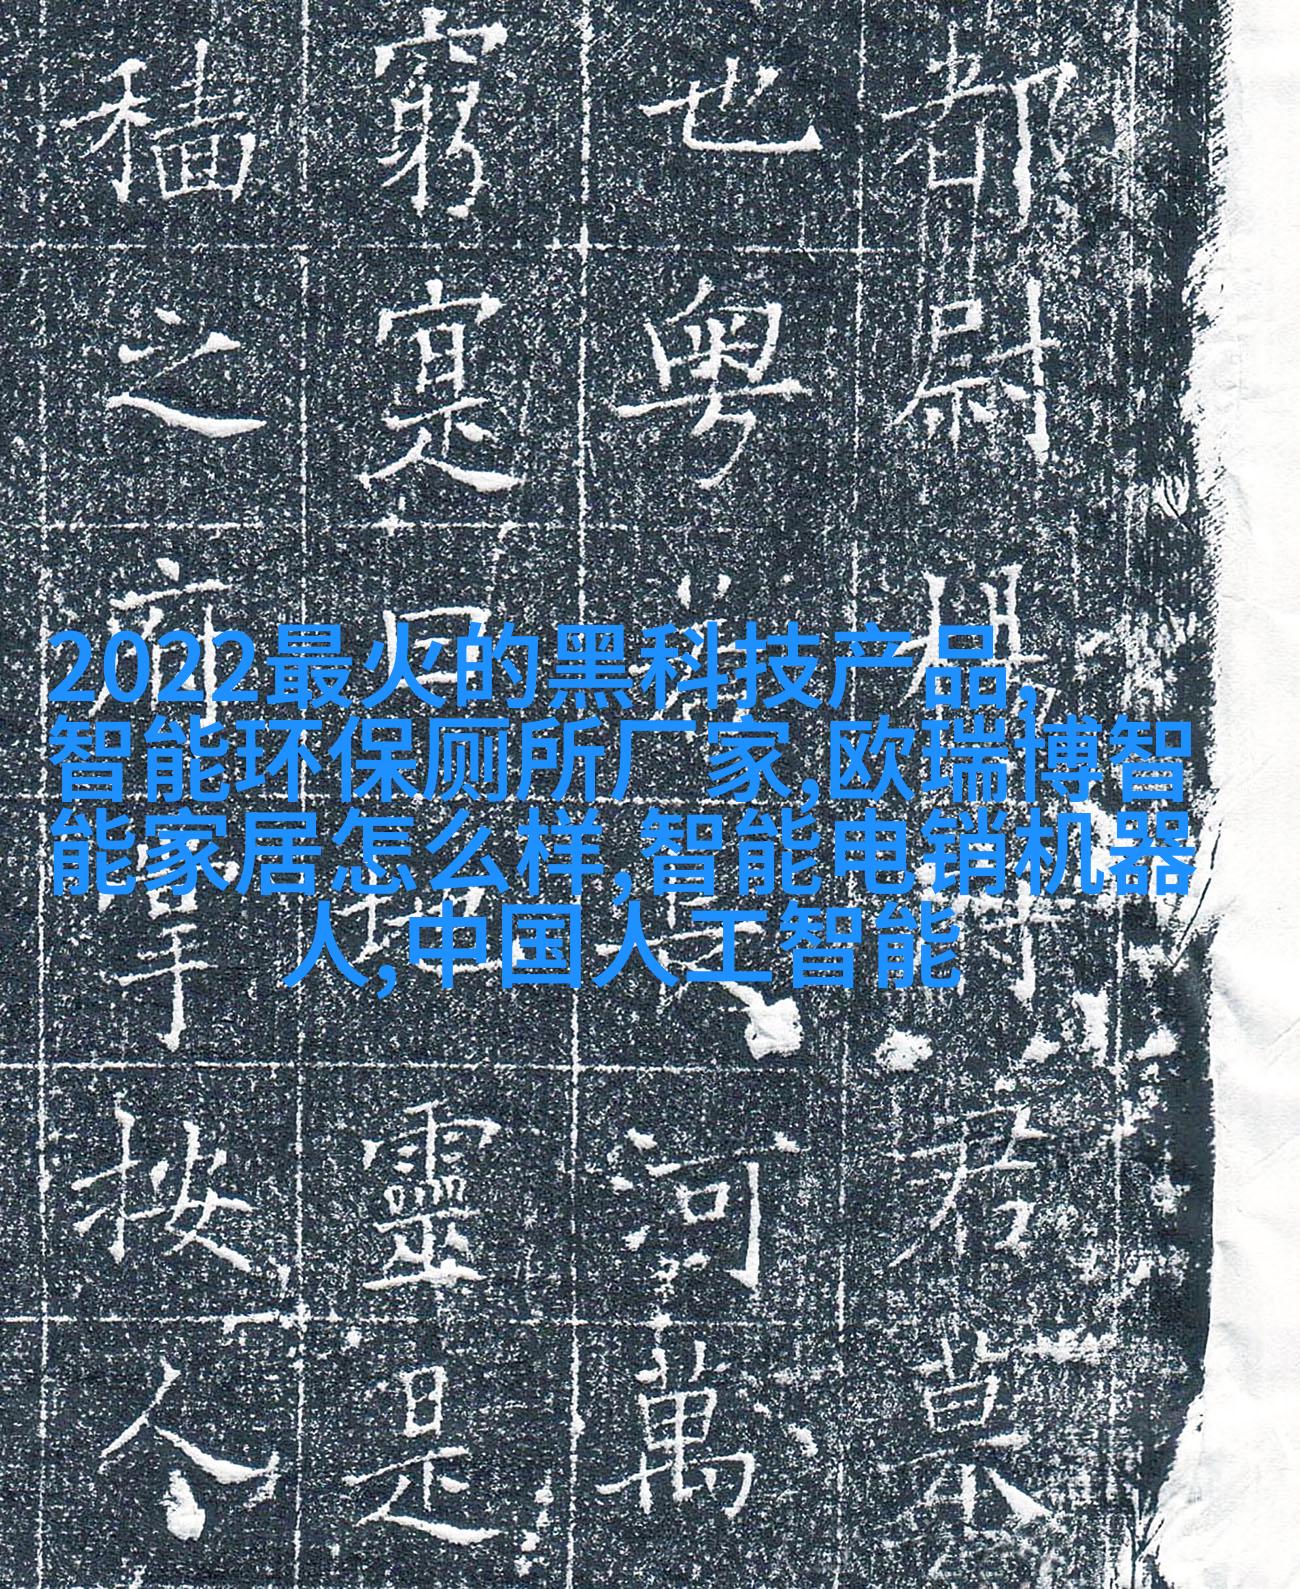 2022最火的黑科技产品,
智能环保厕所厂家,欧瑞博智
能家居怎么样,智能电销机器
人,中国人工智能
都尉楊
也粵河萬
窮寔靈是
穡之按人